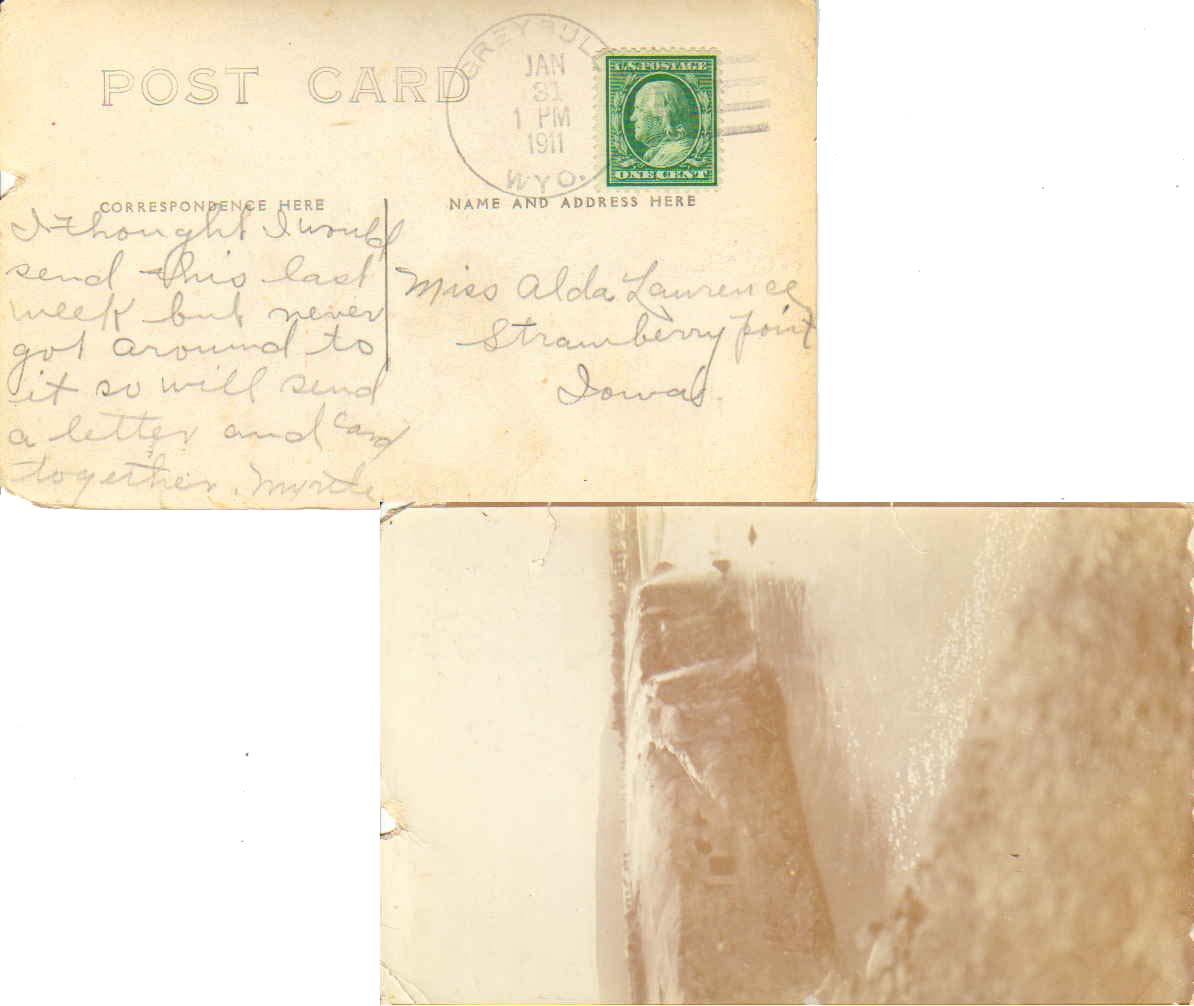 POST CARD
GREYBULL
JAN
31
1 PM
1911
WYO.
U.S. POSTAGE
ONE CENT
CORRESPONDENCE HERE
NAME AND ADDRESS HERE
I thought I would
send this last
week but never
got around to
it so will send
a letter and card
together. Myrtle
Miss Alda Lawrence
Strawberry point
Iowa.